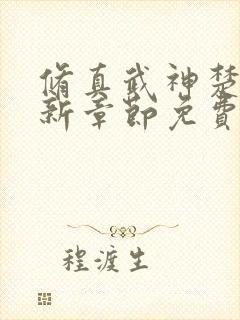 脩真武神楚
新章節免費
程渡生